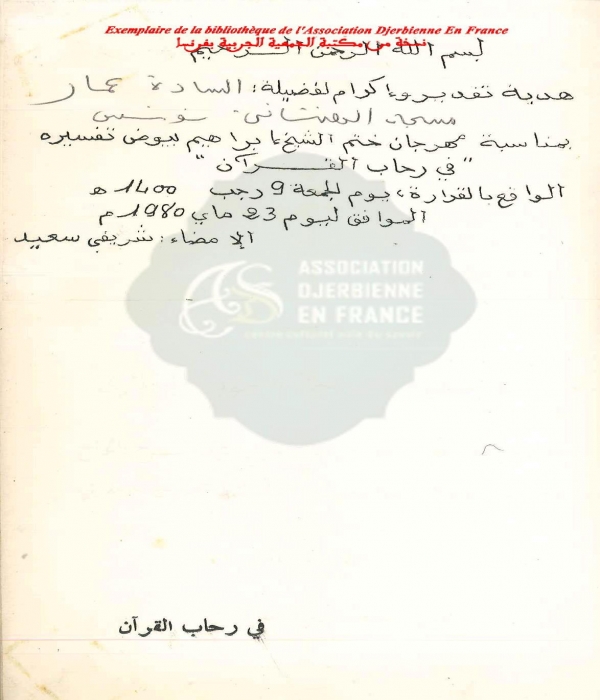 Exemplaire de la bibliothèque de l'Association Djerbienne En France
نسخة من مكتبة الجمعية الجربية بفرنسا
بسم الله الرحمن الرحيم
هدية تقدير وإكرام لفضيلة: السادة عمار
مسجد تونس
بمناسبة مهرجان ختم الشيخ إبراهيم بيوض تفسيره
"في رحاب القرآن"
الواقع بالقرارة، يوم الجمعة 9 رجب 1400 هـ
الموافق ليوم 23 ماي 1980م
الإمضاء: شريفي سعيد
ASSOCIATION
DJERBIENNE
EN FRANCE
في رحاب القرآن